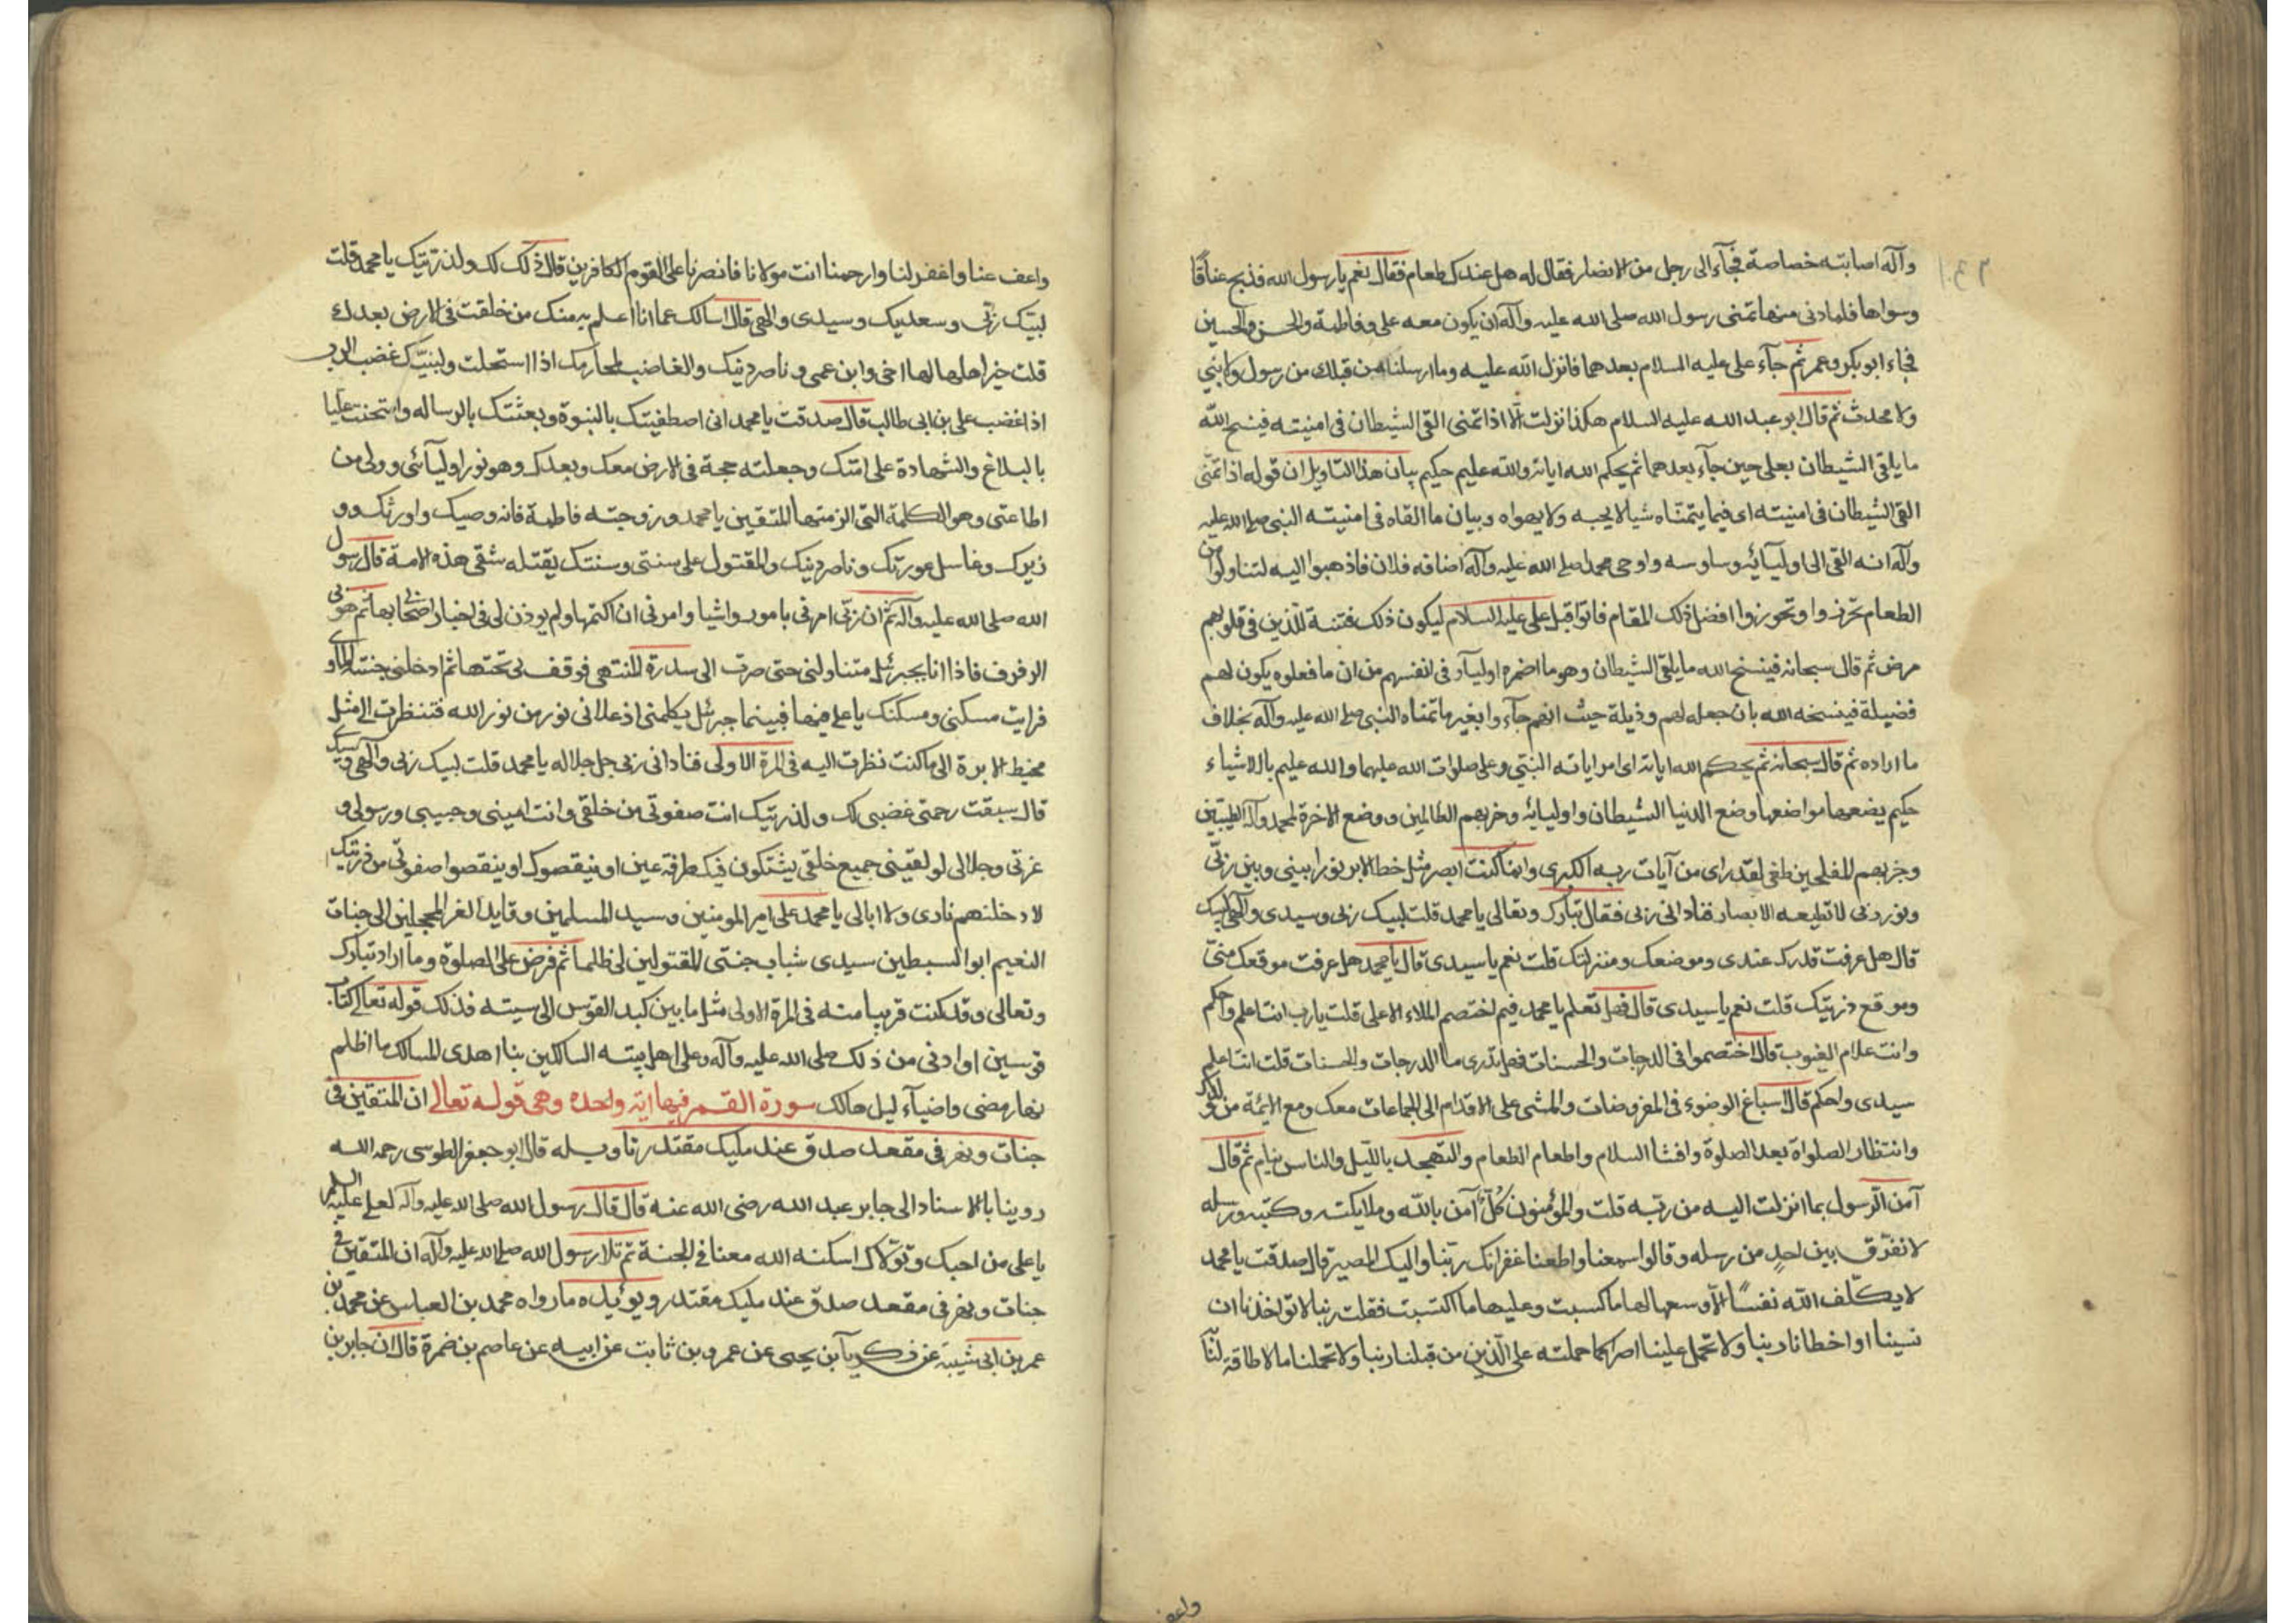 وآله اصابته خصاصة فجآء الى رجل من الانصار فقال له هل عندك طعام فقال نعم يا رسول الله فذبح عناقا
وسواها فلما دنى منها تمنى رسول الله صلى الله عليه وآله ان يكون معه على وفاطمة والحسن والحسين
فجاء ابو بكر وعمر ثم جآء على عليه السلام بعدهما فانزل الله عليه وما ارسلنا من قبلك من رسول ولا نبي
ولا محدث ثم قال ابو عبد الله عليه السلام هكذا نزلت الّا اذا تمنى القى الشيطان فى امنيته فينسخ الله
ما يلقى الشيطان بعلى حين جآء بعدهما ثم يحكم الله اياته والله عليم حكيم بيان هذا التاويل ان قوله اذا تمنّى
القى الشيطان فى امنيته اى فيما يتمنّاه شيا لا يحبه ولا يهواه وبيان ما القاه فى امنيته النبى صلى الله عليه
وآله انه القى الى اوليآئه وساوسه واوحى محمد صلى الله عليه وآله اضافه فلان فاذهبوا اليه لتناولوا من
الطعام وتحوزوا افضل ذلك المقام فاتوا قبل على عليه السلام ليكون ذلك فتنة للّذين فى قلوبهم
مرض ثم قال سبحانه فينسخ الله ما يلقى الشيطان وهو ما اضمره اوليآؤه فى انفسهم من ان ما فعلوه يكون لهم
فضيلة فينسخه الله بان جعله لهم وذيلة حيث انهم جآءوا بغير ما تمناه النبى صلى الله عليه وآله بخلاف
ما اراده ثم قال سبحانه ثم يحكم الله اياته اى امر اياته النبي وعلى صلوات الله عليهما والله عليم بالاشياء
حكيم يضعها مواضعها وضع الدنيا الشيطان واوليائه وحزبهم الظالمين ووضع الاخرة لمحمد وآله الطيبين
وحزبهم المفلحين طغى لقد راى من آيات ربه الكبرى وانما كنت ابصر مثل خط الابر نورا بينى وبين ربّى
ونور ربى لا تطيعه الابصار فنادانى ربى فقال تبارك وتعالى يا محمد قلت لبيك ربى وسيدى والهى لبيك
قال هل عرفت قدرك عندى وموضعك ومنزلتك قلت نعم يا سيدى قال يا محمد هل عرفت موقعك منّى
وموقع ذريتك قلت نعم يا سيدى قال فهل تعلم يا محمد فيم اختصم الملاء الاعلى قلت يا رب انت اعلم واحكم
وانت علام الغيوب قال اختصموا فى الدرجات والحسنات فهل تدرى ما الدرجات والحسنات قلت انت اعلم
سيدى واحكم قال اسباغ الوضوء فى المفروضات والمشى على الاقدام الى الجماعات معك ومع الايمّة من ولدك
وانتظار الصلواة بعد الصلوة وافشا السلام واطعام الطعام والتهجد بالليل والناس نيام ثم قال
آمن الرّسول بما انزلت اليه من ربّه قلت والمؤمنون كُلٌّ آمن بالله وملايكته وكتبه ورسله
لا نفرّق بين احدٍ من رسله وقالوا سمعنا واطعنا غفرانك ربّنا واليك المصير قال صدقت يا محمد
لا يكلّف الله نفسًا الّا وسعها لها ما كسبت وعليها ما اكتسبت فقلت ربنا لا تؤاخذنا ان
نسينا او اخطانا ربنا ولا تحمل علينا اصرا كما حملته على الّذين من قبلنا ربنا ولا تحملنا ما لا طاقة لنا
واعف
واعف عنا واغفر لنا وارحمنا انت مولانا فانصرنا على القوم الكافرين قال ذلك لك ولذريتك يا محمد قلت
لبيك ربّى وسعديك وسيدى والهى قال اسالك عما انا اعلم به منك من خلقت فى الارض بعدك
قلت خير اهلها لها اخى وابن عمى وناصر دينك والغاضب لمحارمك اذا استحلت ولنبيّك غضب
اذا غضب على بن ابى طالب قال صدقت يا محمد انى اصطفيتك بالنبوة وبعثتك بالرساله وامتحنت عليا
بالبلاغ والشهادة على امتك وجعلته حجة فى الارض معك وبعدك وهو نور اوليآئى وولى من
اطاعتى وهو الكلمة التى الزمتها المتقين يا محمد وزوجته فاطمة فانه وصيك واورثك و
زيرك وغاسل عورتك وناصر دينك والمقتول على سنتى وسنتك يقتله شقى هذه الامة قال رسول
الله صلى الله عليه وآله ثم ان ربّى امرنى بامور واشيا وامرنى ان اكتمها ولم يوذن لى فى اخبار اصحابى بها ثم هوى بى
الرفرف فاذا انا بجبرئيل متناولنى حتى صرت الى سدرة المنتهى فوقف بى تحتها ثم ادخلنى جنة الماوى
فرايت مسكنى ومسكنك يا على فيها فبينما جبرئيل يكلمنى اذ علانى نور من نور الله فنظرت الى مثل
مخيط الابرة الى ما كنت نظرت اليه فى المرة الاولى فنادانى ربى جل جلاله يا محمد قلت لبيك ربى والهى وسيدى
قال سبقت رحمتى غضبى لك ولذريتك انت صفوتى من خلقى وانت امينى وحبيبى ورسولى و
عزتى وجلالى لو لقينى جميع خلقى يشتكون فيك طرفة عين او ينقصوك او ينقصوا صفوتى من ذريتك
لادخلنهم نارى ولا ابالى يا محمد على امير المومنين وسيد المسلمين وقايد الغر المحجلين الى جنات
النعيم ابو السبطين سيدى شباب جنتى المقتولين لى ظلما ثم فرض على الصلوة وما اراد تبارك
وتعالى وقد كنت قريبا منه فى المرة الاولى مثل ما بين كبد القوس الى سيته فذلك قوله تعالى كقاب
قوسين او ادنى من ذلك صلى الله عليه وآله وعلى اهل بيته السالكين بنا اهدى المسالك ما اظلم
نهار مضى واضيآء ليل حالك سورة القمر فيها اية واحده وهى قوله تعالى ان المتقين فى
جنات ونهر فى مقعد صدق عند مليك مقتدر تاويله قال ابو جعفر الطوسى رحمه الله
روينا بالاسناد الى جابر عبد الله رضى الله عنه قال قال رسول الله صلى الله عليه وآله لعلى عليه السلم
يا على من احبك وتوّلاك اسكنه الله معنا فى الجنة ثم تلا رسول الله صلى الله عليه وآله ان المتقين فى
جنات ونهر فى مقعد صدق عند مليك مقتدر ويؤيده ما رواه محمد بن العباس عن محمد بن
عمر بن ابى شيبة عن زكريا بن يحيى عن عمرو بن ثابت عن ابيه عن عاصم بن ضمرة قال ان جابر بن